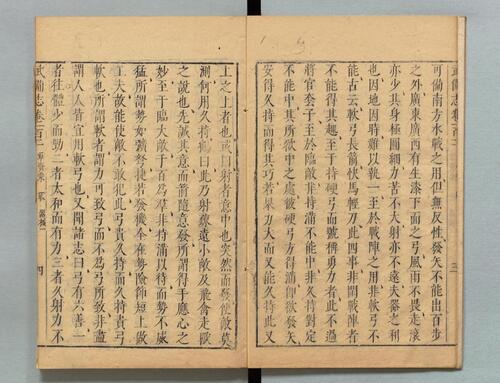 武備志卷一百二 三
可備南方水戰之用但無反性發矢不能出百步
之外廣東廣西有生漆下面之弓風雨不畏走滾
亦少其身極圓細力苦不大射亦不遠夫器之利
也因地因時難以執一至於戰陣之用非軟弓不
能古云軟弓長箭快馬輕刀此四事非閑戰陣者
不能得其趣至于持硬弓而號稱勇力者此不過
將官套子至於臨敵非持滿不能中非久持對定
不能中其所欲中之處彼硬弓方得滿而欲發矢
安得久持而得其巧若果力大而又能久持此又
上之上者也或曰射者意中也突然而發使敵莫
測何用久持曰此乃射遠小敵及飛禽走獸
之說也先誠其意而箭隨意發所謂得手應心之
妙至于臨大敵千百為羣非持滿以待而勢不威
猛所謂勢如彍弩捷若發機全在勢險節短上做
工夫故能使敵不敢犯此弓貴久持而久持貴弓
軟也所謂軟者謂力可致弓而不為弓所致非盡
謂人人皆宜用軟弓也又聞諸志曰弓有六善一
者往體少而勁二者太和而有力三者久射力不
武備志卷一百二 四